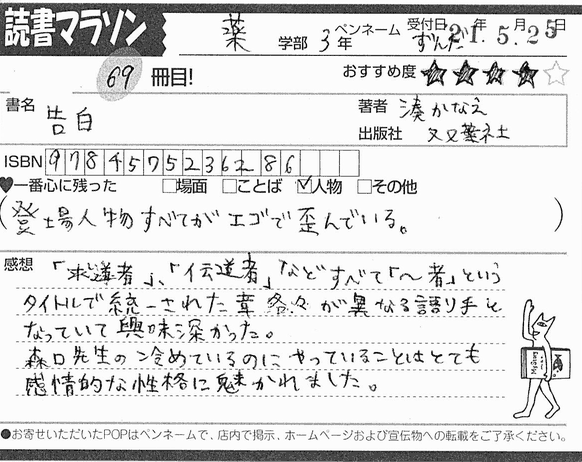 読書マラソン
薬 学部 3年 ペンネーム ずんだ 受付日 21年 5月 25日
69 冊目! おすすめ度 ★★★★☆
書名 告白
著者 湊かなえ
出版社 双葉社
ISBN 9784575236286
♥一番心に残った □場面 □ことば ☑人物 □その他
(登場人物すべてがエゴで歪んでいる。)
感想 「求道者」、「伝道者」などすべて「~者」という
タイトルで統一された章 各々が異なる語り手と
なっていて興味深かった。
森口先生の冷めているのにやっていることはとても
感情的な性格に魅かれました。
●お寄せいただいたPOPはペンネームで、店内で掲示、ホームページおよび宣伝物への転載をご了承ください。